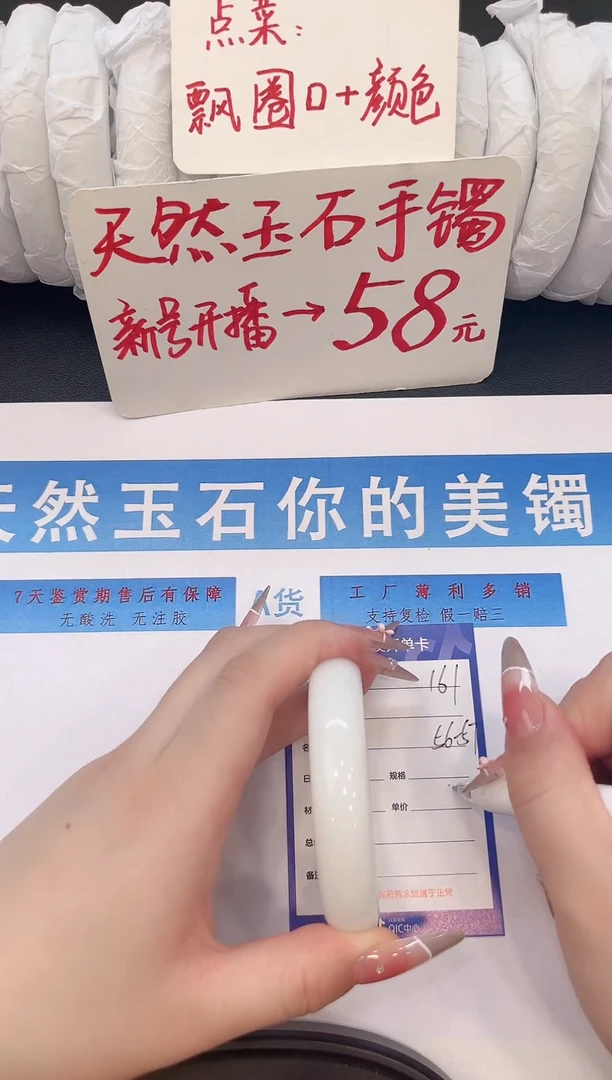 点菜:
飘圈口+颜色
天然玉石手镯
新号开播→58元
天然玉石你的美镯
7天鉴赏期售后有保障
无酸洗 无注胶
A货
工厂薄利多销
支持复检 假一赔三
单卡
161
56-57
规格
单价
材
总
备注
QIC中心